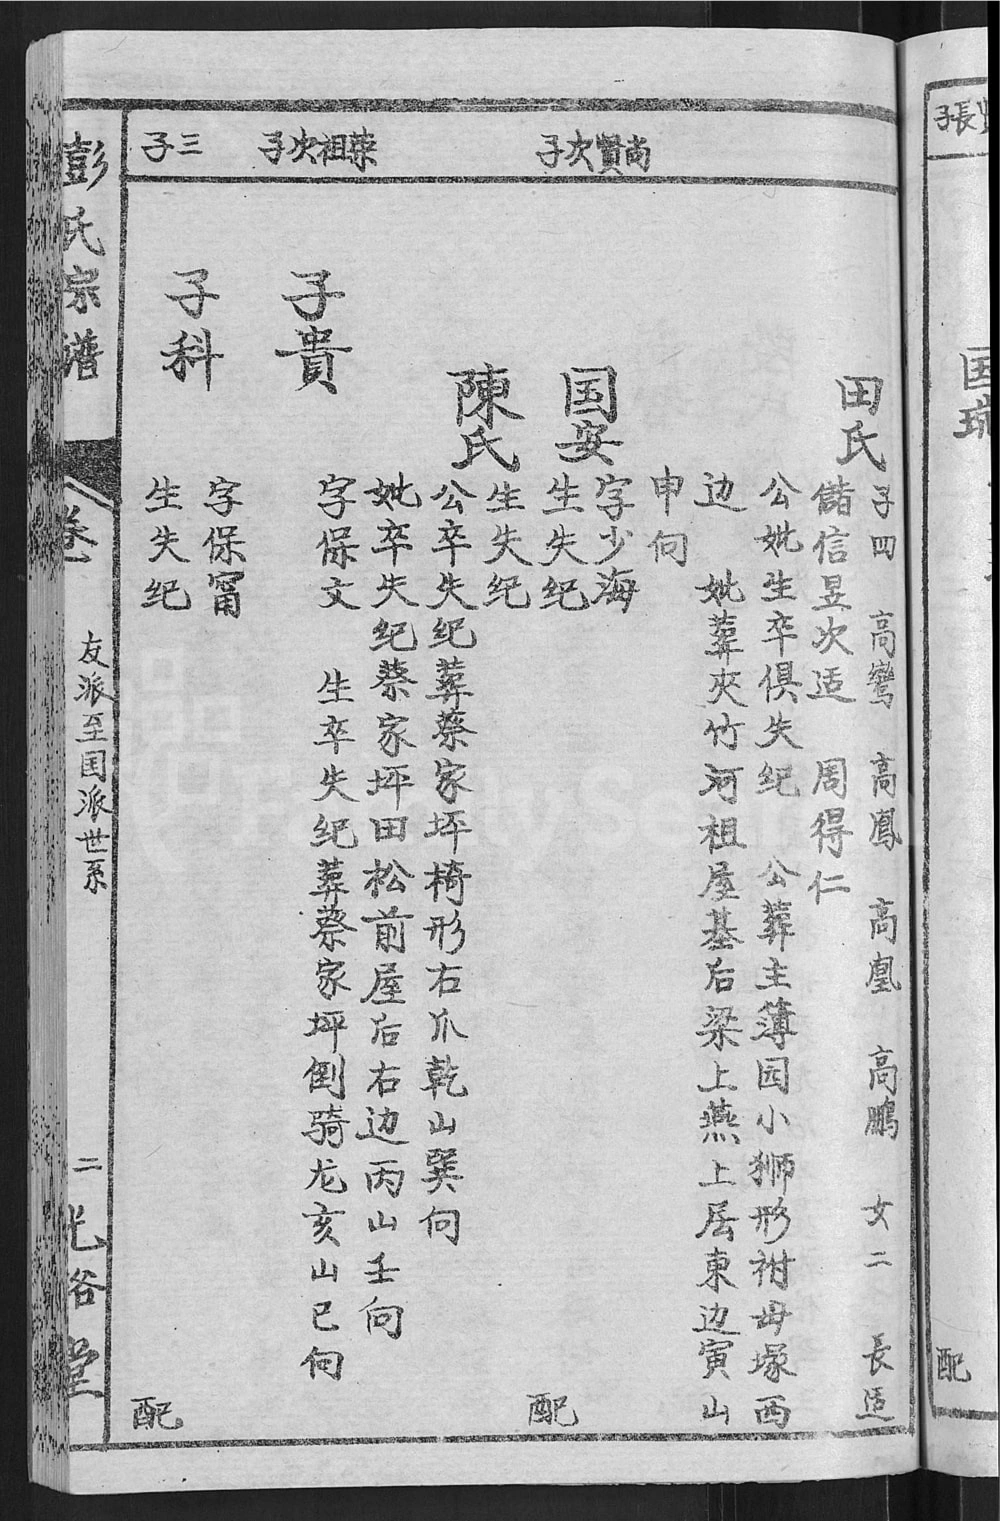 尚賢次子
荣祖次子
三子
田氏
子四 高鸞 高鳳 高凰 高鵬 女二 長适
儲信昱次适 周得仁
公妣生卒俱失纪 公葬主薄园小狮形祔毋塚西
边 妣葬夾竹河祖屋基后梁上燕上居東边寅山
申向
国安
字少海
生失纪
配
陳氏
生失纪
公卒失纪葬蔡家坪椅形右爪乾山巽向
妣卒失纪蔡家坪田松前屋后右边丙山壬向
子貴
字保文 生卒失纪葬蔡家坪倒骑龙亥山巳向
子科
字保甯
生失纪
配
彭氏宗谱
卷一
友派至国派世系
二
光裕堂
国瑞
配